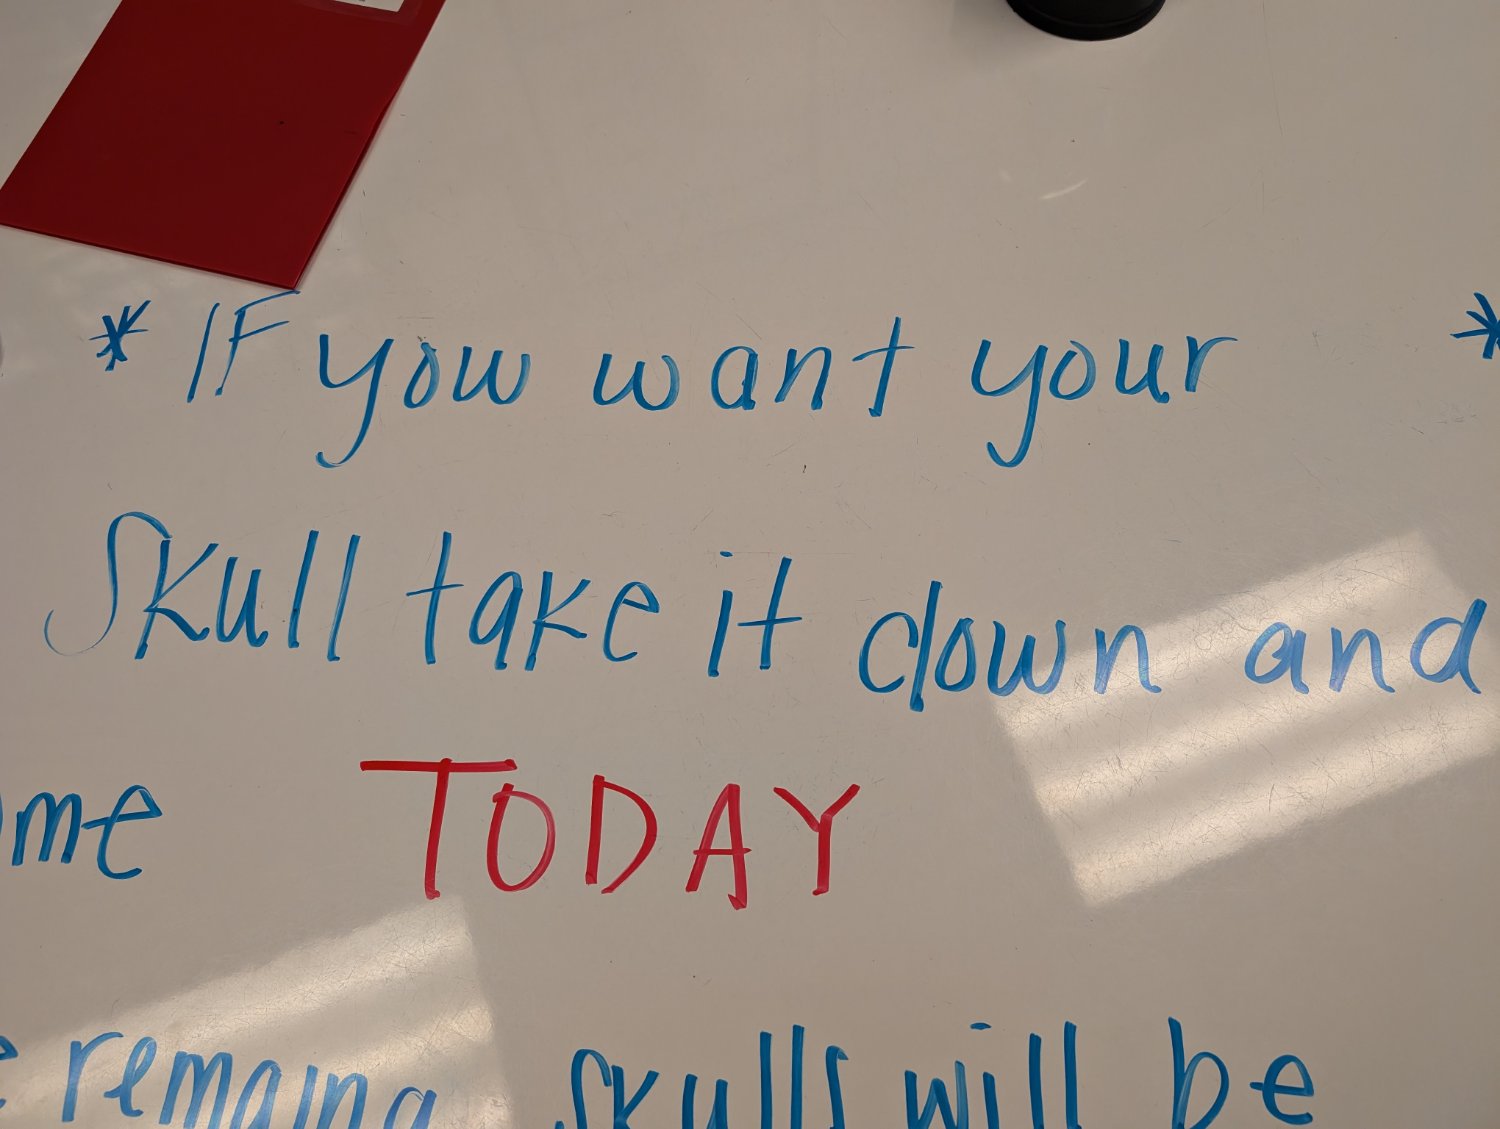 * IF you want your *
Skull take it down and
ome TODAY
e remaing skulls will be